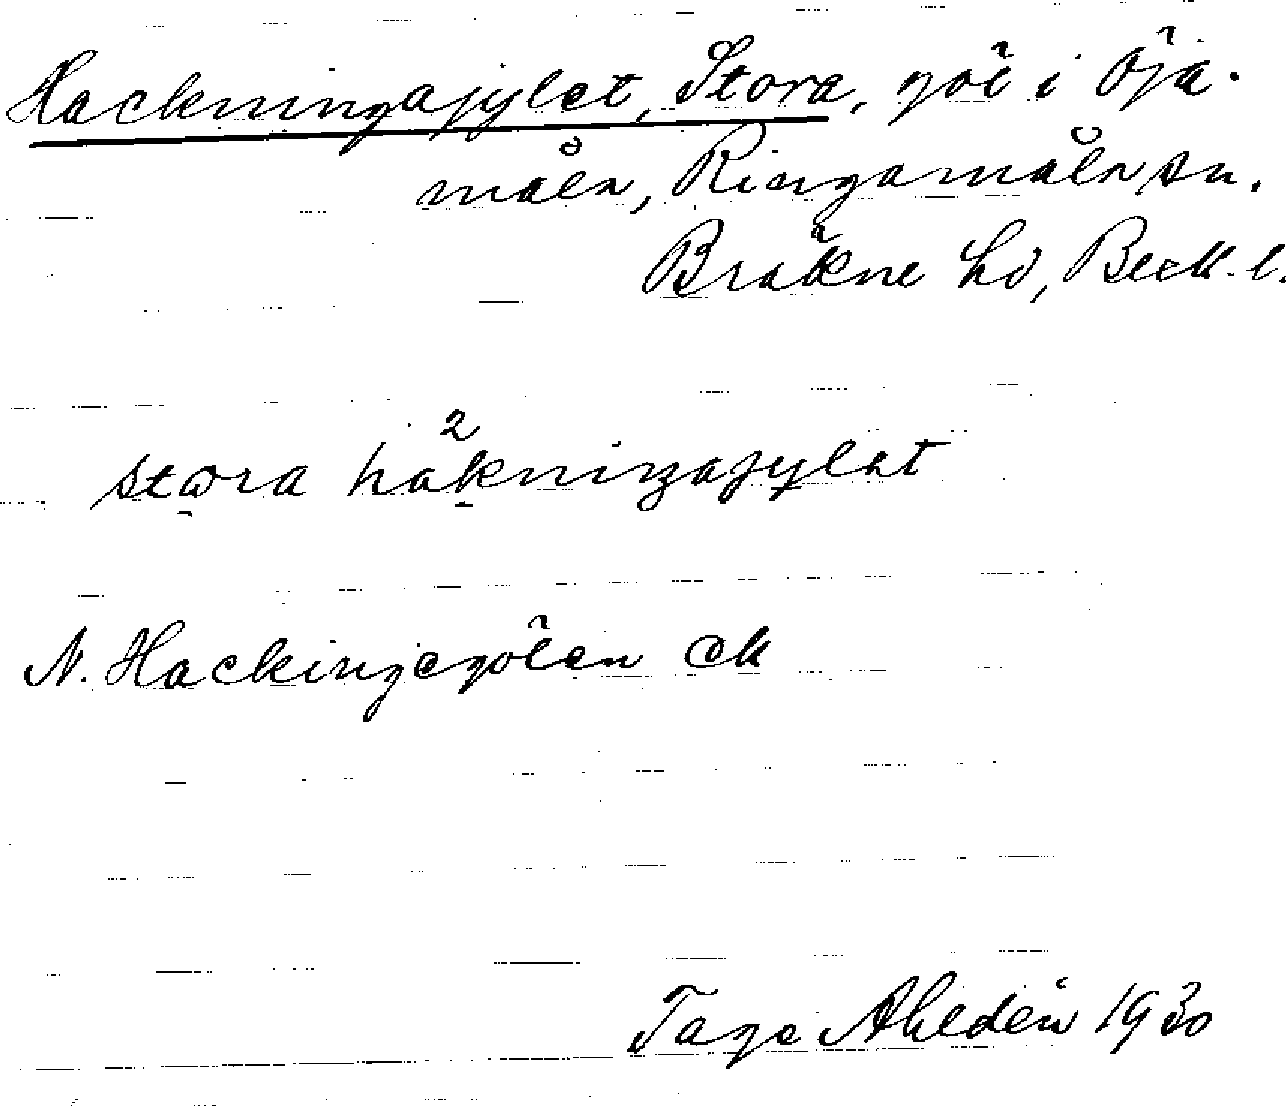 Hackningagylet, Stora, göl i Öja-
måla, Ringamåla sn.
Bräkne hd, Blek. l.
stora hakningagylet
N. Hackingegölen ek
Tage Ahldén 1930